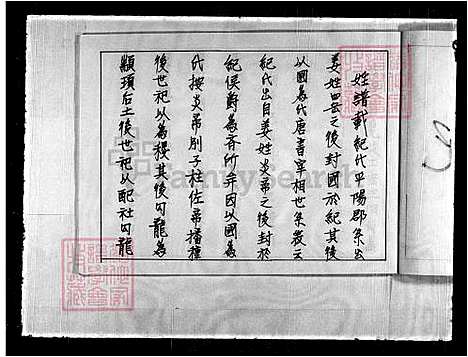 姓譜載紀氏平陽郡系出
姜姓四岳之後封國於紀其後
以國為氏唐書宰相世系表云
紀氏出自姜姓炎帝之後封於
紀侯爵為齊所并因以國為
氏按炎帝別子柱佐帝播種
後世祀以為稷其後勾龍為
顓頊后土後世祀以配社勾龍
FamilySearch